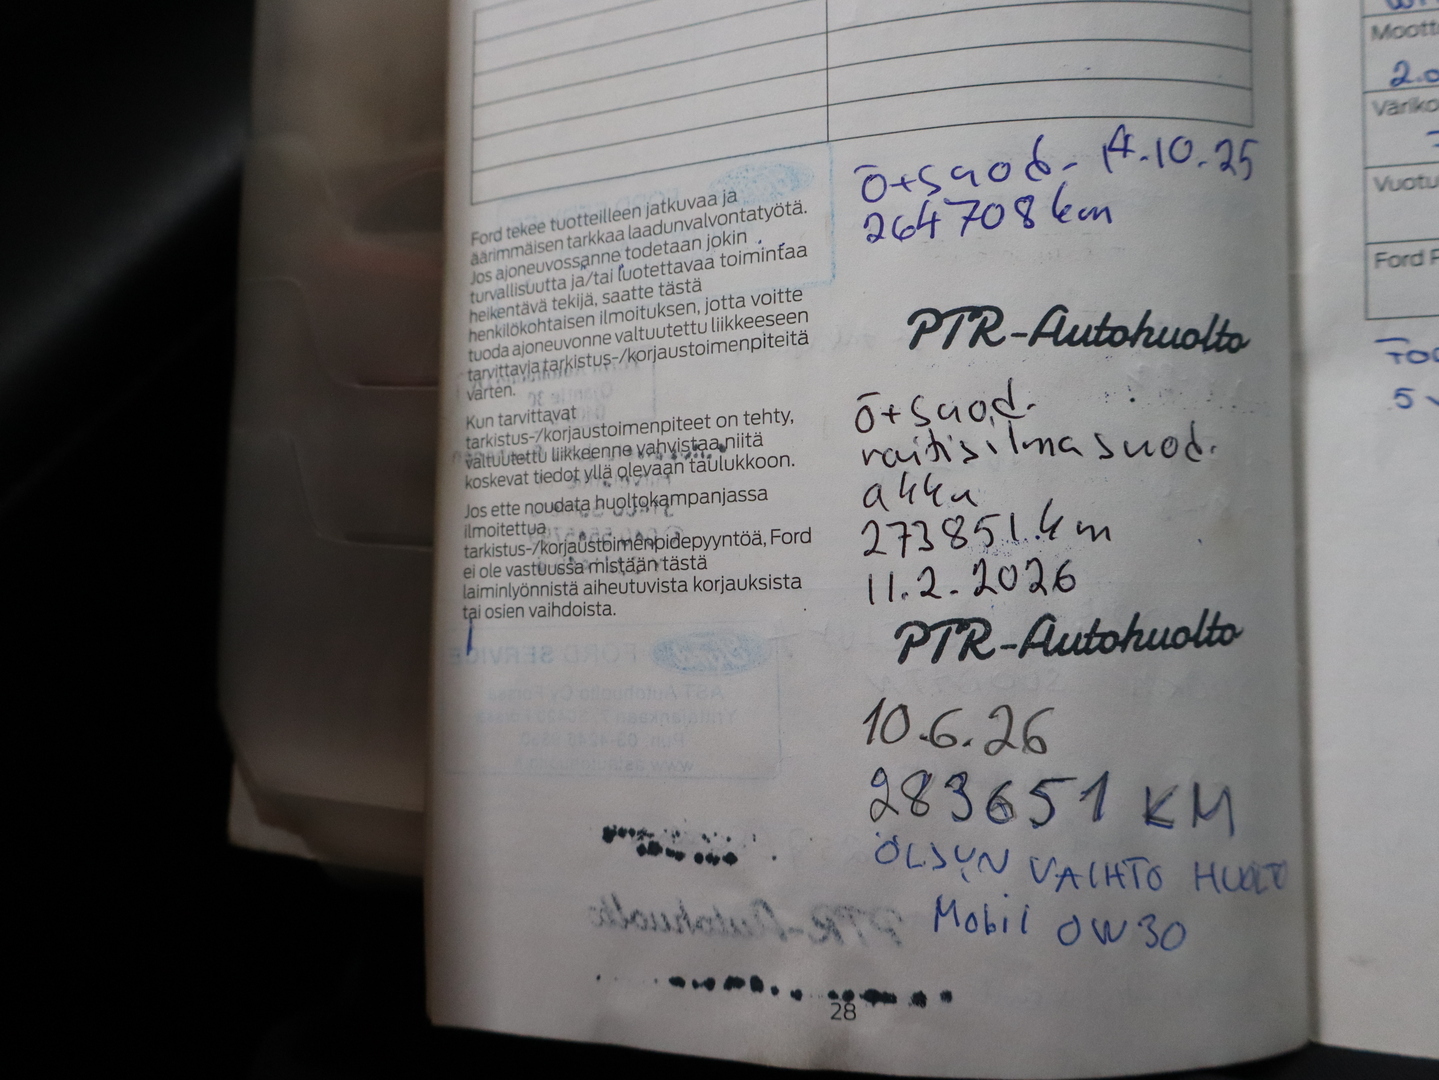 Ford tekee tuotteilleen jatkuvaa ja
äärimmäisen tarkkaa laadunvalvontatyötä.
Jos ajoneuvossanne todetaan jokin
turvallisuutta ja/tai luotettavaa toimintaa
heikentävä tekijä, saatte tästä
henkilökohtaisen ilmoituksen, jotta voitte
tuoda ajoneuvonne valtuutettu liikkeeseen
tarvittavia tarkistus-/korjaustoimenpiteitä
varten.
Kun tarvittavat
tarkistus-/korjaustoimenpiteet on tehty,
valtuutettu liikkeenne vahvistaa niitä
koskevat tiedot yllä olevaan taulukkoon.
Jos ette noudata huoltokampanjassa
ilmoitettua
tarkistus-/korjaustoimenpidepyyntöä, Ford
ei ole vastuussa mistään tästä
laiminlyönnistä aiheutuvista korjauksista
tai osien vaihdoista.
ö+suod. 14.10.25
264708 km
PTR-Autohuolto
ö+suod.
raitisilmasuod.
akku
273851 km
11.2.2026
PTR-Autohuolto
10.6.26
283651 KM
ÖLJYN VAIHTO HUOLTO
Mobil 0W30
28
Moott
2.0
Väriko
Vuotu
Ford
5